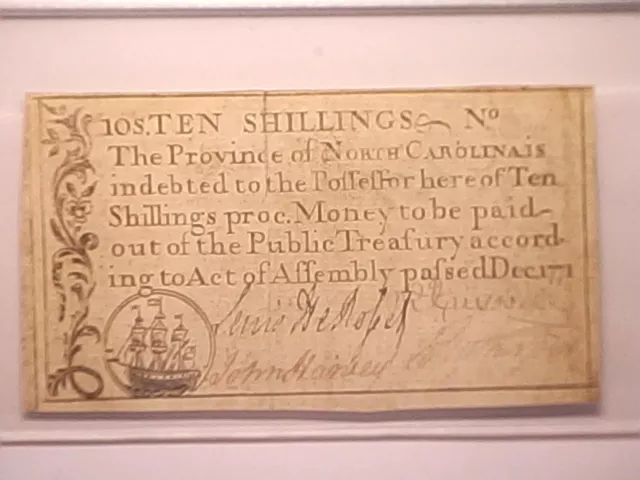 10S.TEN SHILLINGS Nº
The Province of NORTH CAROLINA is
indebted to the Poſſeſſor hereof Ten
Shillings proc. Money to be paid
out of the Public Treaſury accord-
ing to Act of Aſſembly paſsed Dec. 1771
Lewis De Roſſet
John Harvey